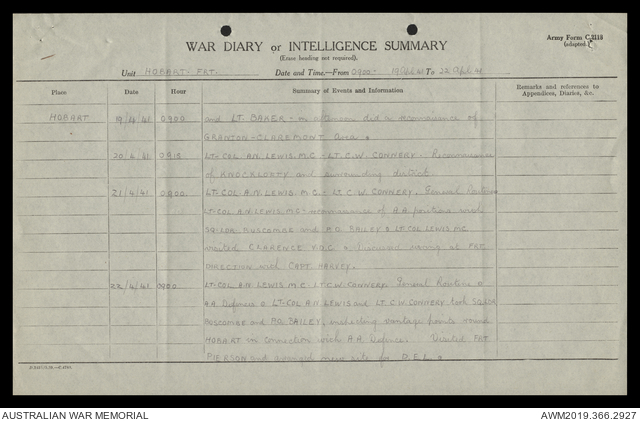 Army Form C.2118
(adapted.)
WAR DIARY or INTELLIGENCE SUMMARY
(Erase heading not required).
Unit HOBART FRT. Date and Time.—From 0900 19 Apl 41 To 22 Apl 41
Place Date Hour Summary of Events and Information Remarks and references to Appendices, Diaries, &c.
HOBART 19/4/41 0900 and LT. BAKER - in afternoon did a reconnaissance of
GRANTON-CLAREMONT Area.
20/4/41 0915 LT-COL A.N. LEWIS M.C. - LT. C.W. CONNERY. Reconnaissance
of KNOCKLOFTY and surrounding district.
21/4/41 0900 LT-COL A.N. LEWIS M.C. - LT. C.W. CONNERY. General Routine
LT-COL A.N. LEWIS M.C. reconnaissance of A.A. positions with
SQ-LDR BUSCOMBE and P.O. BAILEY & LT-COL LEWIS M.C.
visited CLARENCE and discussed wiring at FRT
DIRECTION with CAPT HARVEY.
22/4/41 0900 LT-COL A.N. LEWIS M.C. LT. C.W. CONNERY. General Routine
A.A. Defences LT-COL A.N. LEWIS and LT. C.W. CONNERY took SQ-LDR
BUSCOMBE and P.O. BAILEY, inspecting vantage points round
HOBART in connection with A.A. Defence. Visited FRT
PIERSON and arranged new site for D.E.L.
AUSTRALIAN WAR MEMORIAL
AWM2019.366.2927